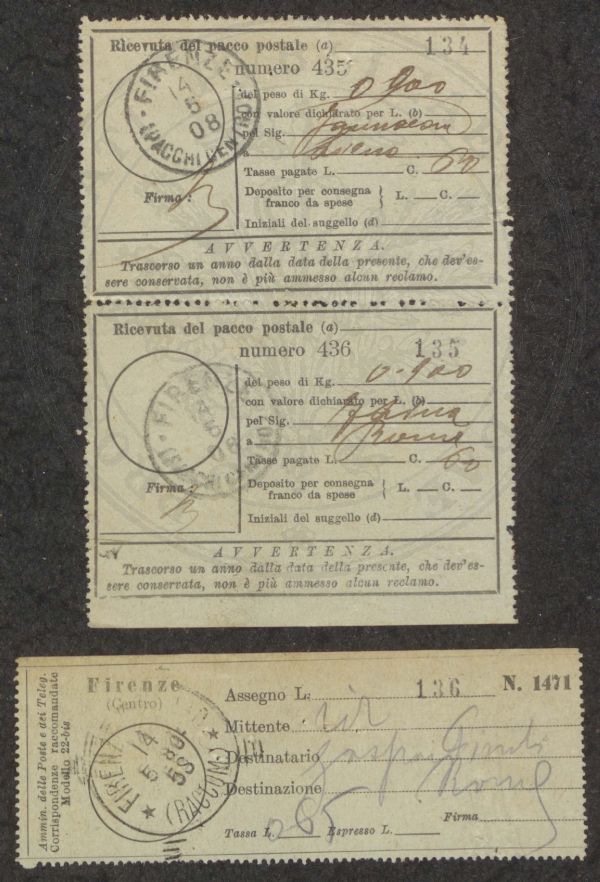 Ricevuta del pacco postale (a) 134
numero 435
FIRENZE
14 5 08
(PACCHI CENTRO)
del peso di Kg. 0 900
con valore dichiarato per L. (b)
pel Sig.
a
Tasse pagate L. C. 60
Firma:
Deposito per consegna franco da spese } L. C.
Iniziali del suggello (d)
AVVERTENZA.
Trascorso un anno dalla data della presente, che dev'es-
sere conservata, non è più ammesso alcun reclamo.
Ricevuta del pacco postale (a)
numero 436 135
FIRENZE
del peso di Kg. 0-900
con valore dichiarato per L. (b)
pel Sig.
a Roma
Tasse pagate L. C. 60
Firma:
Deposito per consegna franco da spese } L. C.
Iniziali del suggello (d)
AVVERTENZA.
Trascorso un anno dalla data della presente, che dev'es-
sere conservata, non è più ammesso alcun reclamo.
Ammin. delle Poste e dei Teleg.
Corrispondenze raccomandate
Modello 22-bis
Firenze
(Centro)
FIRENZE
(RACCOM.)
Assegno L. 136 N. 1471
Mittente
Destinatario
Destinazione Roma
Firma
Tassa L. 0 65 Espresso L.